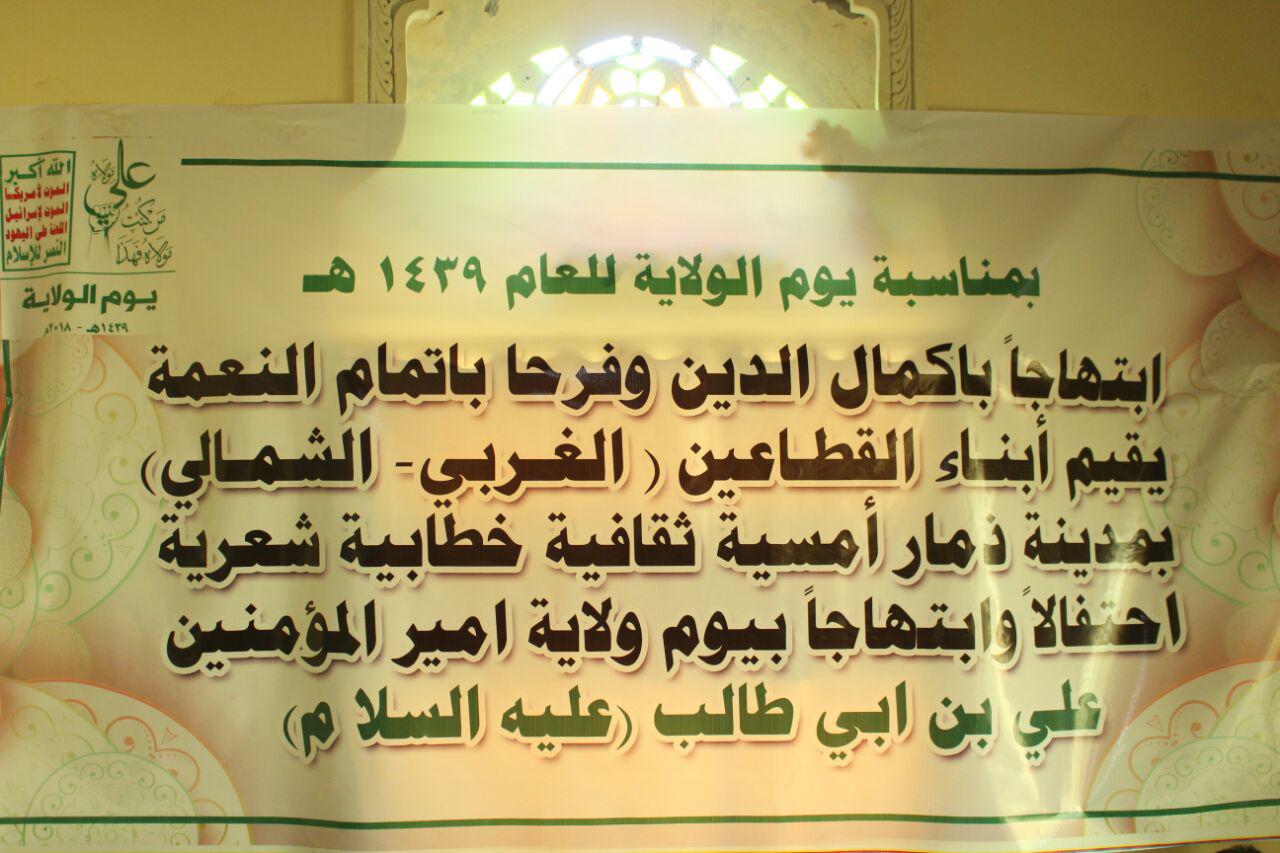 الله أكبر
الموت لأمريكا
الموت لإسرائيل
اللعنة على اليهود
النصر للإسلام
من كنت مولاه فهذا علي مولاه
يوم الولاية
١٤٣٩هـ - ٢٠١٨م
بمناسبة يوم الولاية للعام ١٤٣٩ هـ
ابتهاجاً باكمال الدين وفرحا باتمام النعمة
يقيم أبناء القطاعين ( الغربي- الشمالي)
بمدينة ذمار أمسية ثقافية خطابية شعرية
احتفالاً وابتهاجاً بيوم ولاية امير المؤمنين
علي بن ابي طالب (عليه السلام)